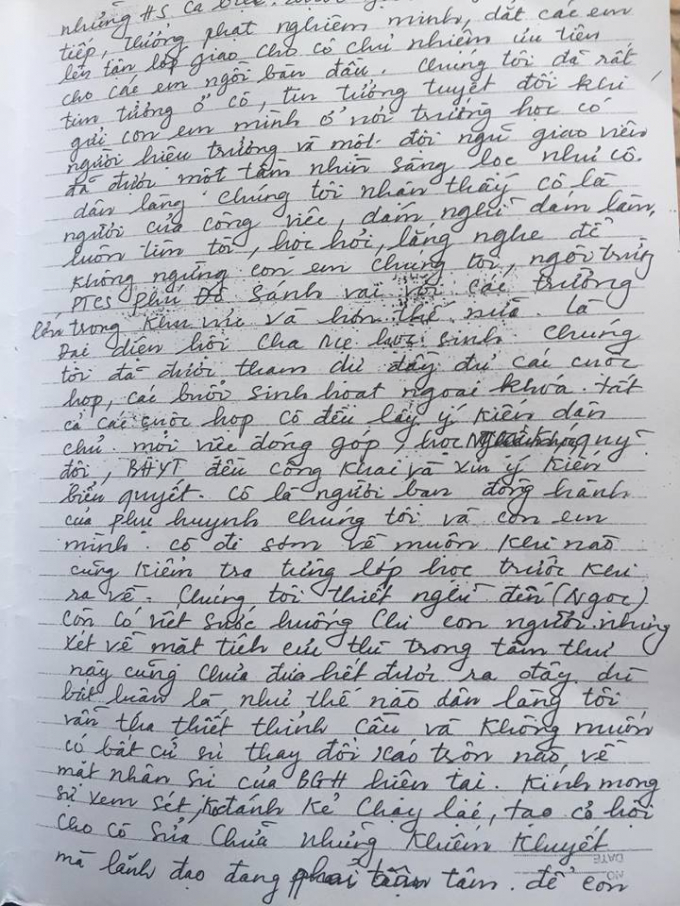 những HS cá biệt
tiếp, thưởng phạt nghiêm minh, dắt các em
lên tận lớp giao cho cô chủ nhiệm ưu tiên
cho các em ngồi bàn đầu. Chúng tôi đã rất
tin tưởng ở cô, tin tưởng tuyệt đối khi
gửi con em mình ở nơi trường học có
người hiệu trưởng và một đội ngũ giáo viên
đã được một tầm nhìn sàng lọc như cô.
dân làng chúng tôi nhận thấy cô là
người của công việc, dám nghĩ dám làm,
luôn tìm tòi, học hỏi, lắng nghe để
không ngừng con em chúng tôi, ngôi trường
PTCS Phú Đô sánh vai với các trường
lớn trong khu vực và hơn thế nữa. là
Đại diện hội cha mẹ học sinh. Chúng
tôi đã được tham dự đầy đủ các cuộc
họp, các buổi sinh hoạt ngoại khóa. tất
cả các cuộc họp cô đều lấy ý kiến dân
chủ. mọi việc đóng góp, học quỹ
đội, BHYT đều công khai và xin ý kiến
biểu quyết. cô là người bạn đồng hành
của phụ huynh chúng tôi và con em
mình. cô đi sớm về muộn khi nào
cũng kiểm tra từng lớp học trước khi
ra về. Chúng tôi thiết nghĩ đến (Ngọc)
còn có viết sước huống chi con người. nhưng
xét về mặt tích cực thì trong tâm thư
này cũng chưa đưa hết được ra đây. dù
bất luận là như thế nào dân làng tôi
vẫn tha thiết thỉnh cầu và không muốn
có bất cứ sự thay đổi xáo trộn nào, về
mặt nhân sự của BGH hiện tại. Kính mong
sự xem sét, tránh kẻ chạy lạc, tạo cơ hội
cho cô sửa chữa những khiếm khuyết
mà lãnh đạo đang phải bận tâm. để con
DATE
NO